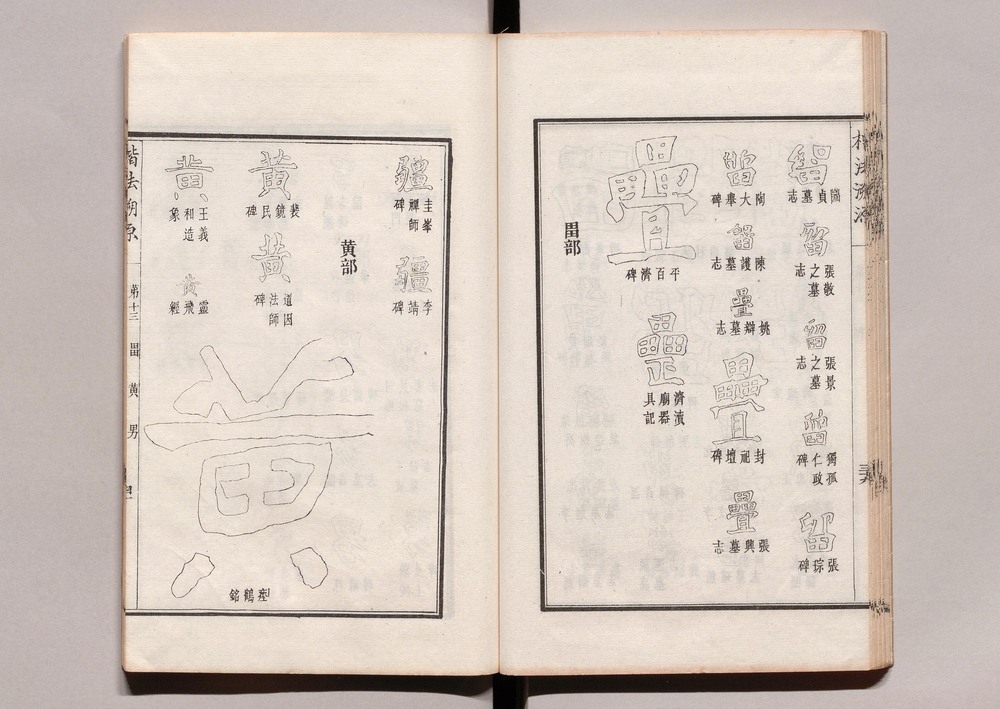 留
貞墓志
留
張敬之墓志
留
張景之墓志
留
獨孤仁政碑
留
張琮碑
留
陶大舉碑
留
陳護墓志
疊
姚辯墓志
疊
封祀壇碑
疊
張興墓志
疊
平百濟碑
疊
濟瀆廟器具記
畕部
疆
圭峯禪師碑
疆
李靖碑
黃部
黃
裴鏡民碑
黃
道因法師碑
黃
瘞鶴銘
黃
王義利造象
黃
靈飛經
楷法溯源 第十三 畕 黃 男